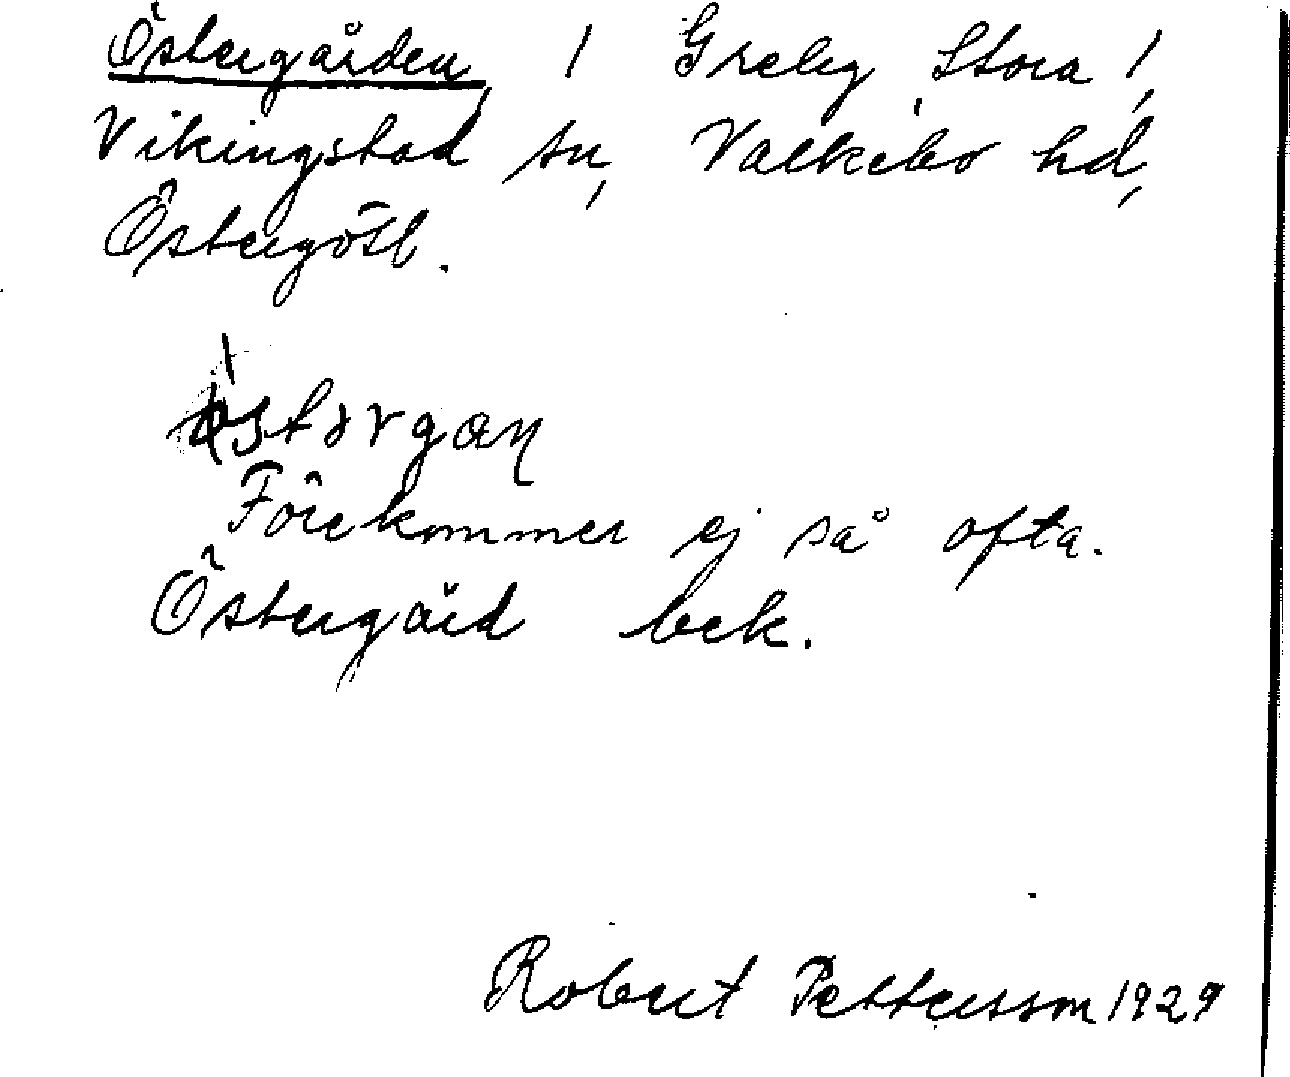 Östergården / Greby, Stora /,
Vikingstad sn, Valkebo hd,
Östergötl.
Förekommer ej så ofta.
Östergård bek.
Robert Pettersson 1929